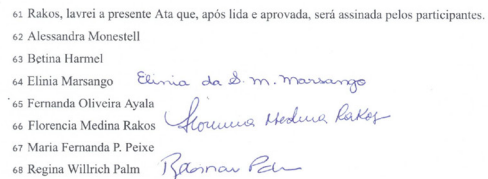 61 Rakos, lavrei a presente Ata que, após lida e aprovada, será assinada pelos participantes.
62 Alessandra Monestell
63 Betina Harmel
64 Elinia Marsango Elinia da S. M. Marsango
65 Fernanda Oliveira Ayala
66 Florencia Medina Rakos Florencia Medina Rakos
67 Maria Fernanda P. Peixe
68 Regina Willrich Palm